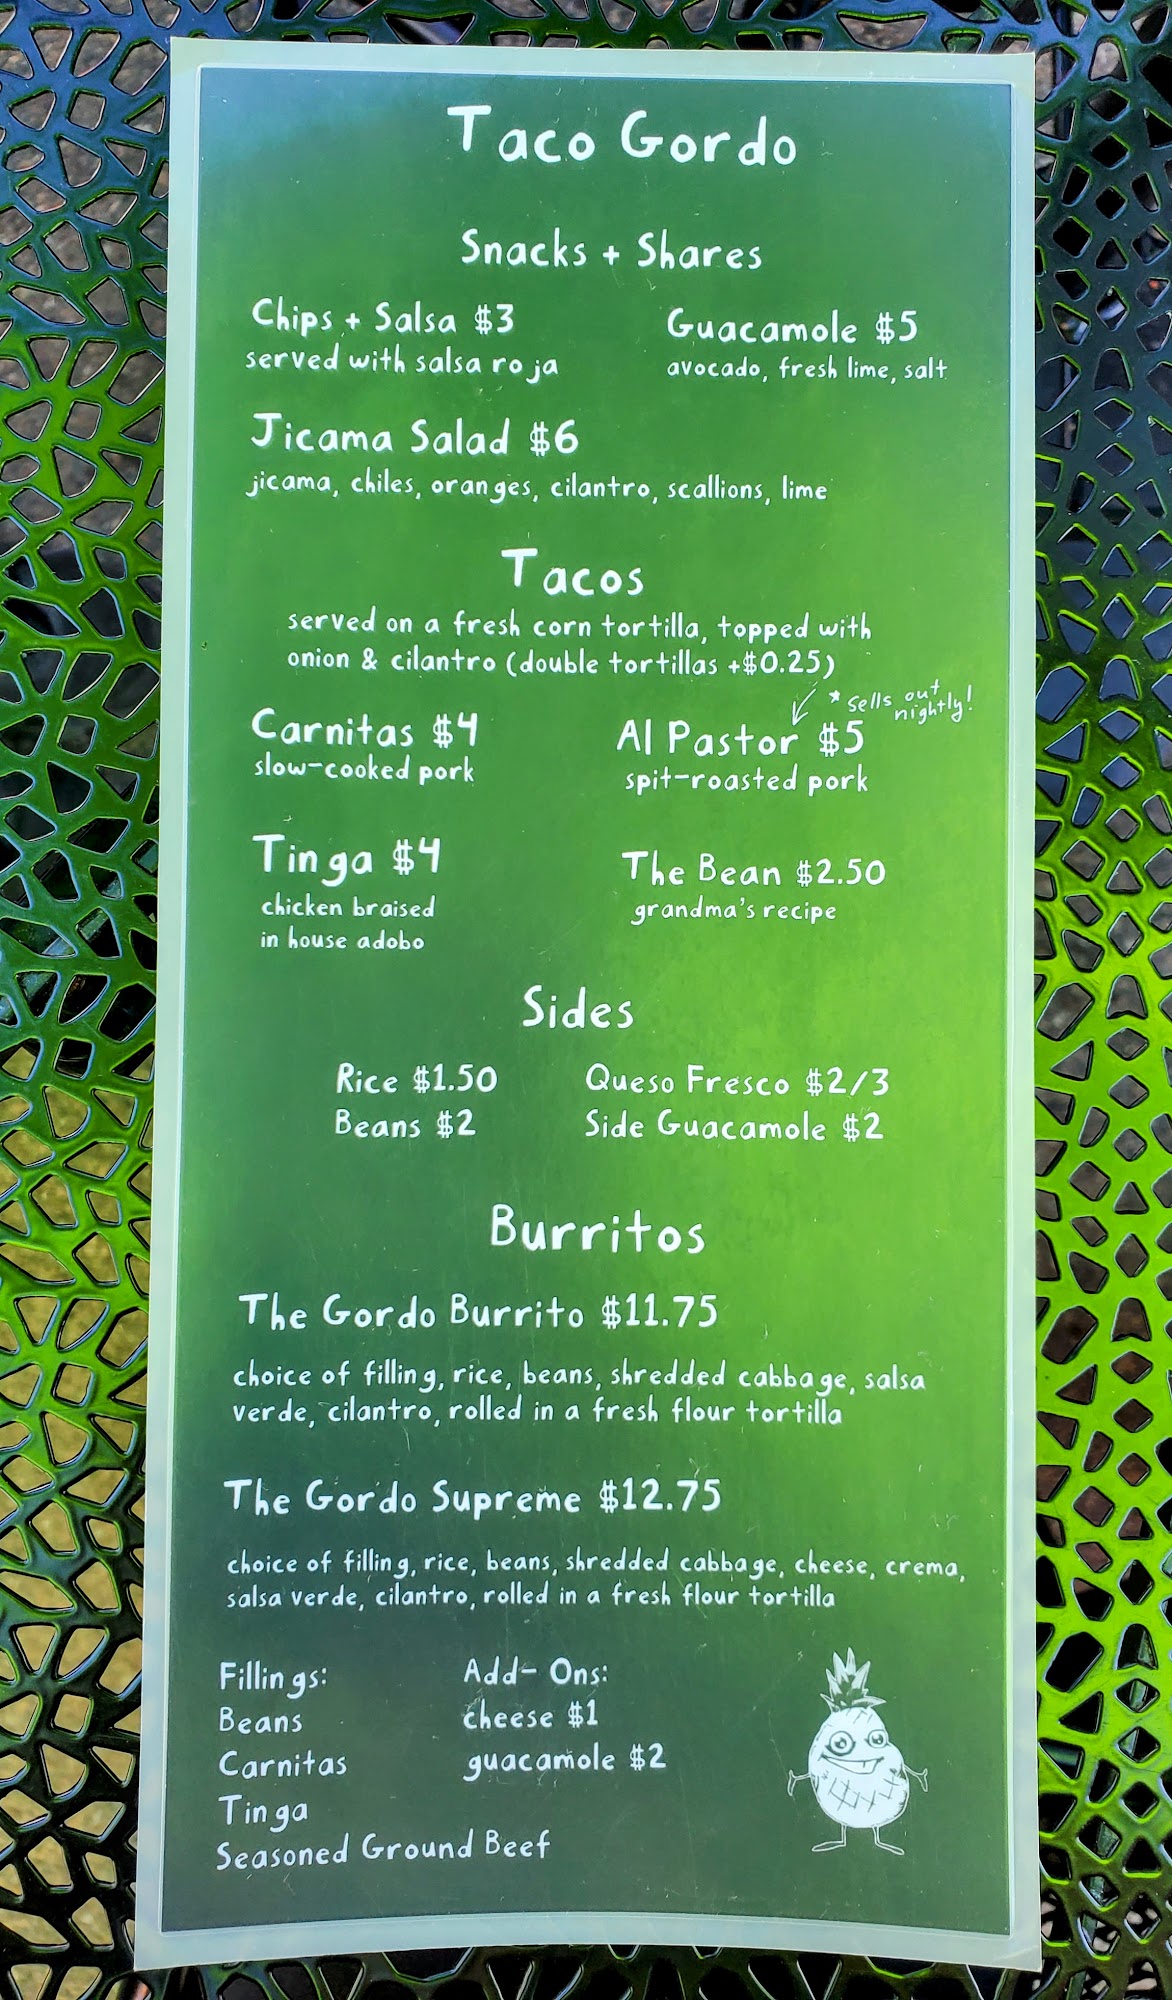 Taco Gordo
Snacks + Shares
Chips + Salsa $3
served with salsa roja
Guacamole $5
avocado, fresh lime, salt
Jicama Salad $6
jicama, chiles, oranges, cilantro, scallions, lime
Tacos
served on a fresh corn tortilla, topped with
onion & cilantro (double tortillas +$0.25)
Carnitas $4
slow-cooked pork
* sells out
nightly!
Al Pastor $5
spit-roasted pork
Tinga $4
chicken braised
in house adobo
The Bean $2.50
grandma's recipe
Sides
Rice $1.50
Beans $2
Queso Fresco $2/3
Side Guacamole $2
Burritos
The Gordo Burrito $11.75
choice of filling, rice, beans, shredded cabbage, salsa
verde, cilantro, rolled in a fresh flour tortilla
The Gordo Supreme $12.75
choice of filling, rice, beans, shredded cabbage, cheese, crema,
salsa verde, cilantro, rolled in a fresh flour tortilla
Fillings:
Beans
Carnitas
Tinga
Seasoned Ground Beef
Add- Ons:
cheese $1
guacamole $2